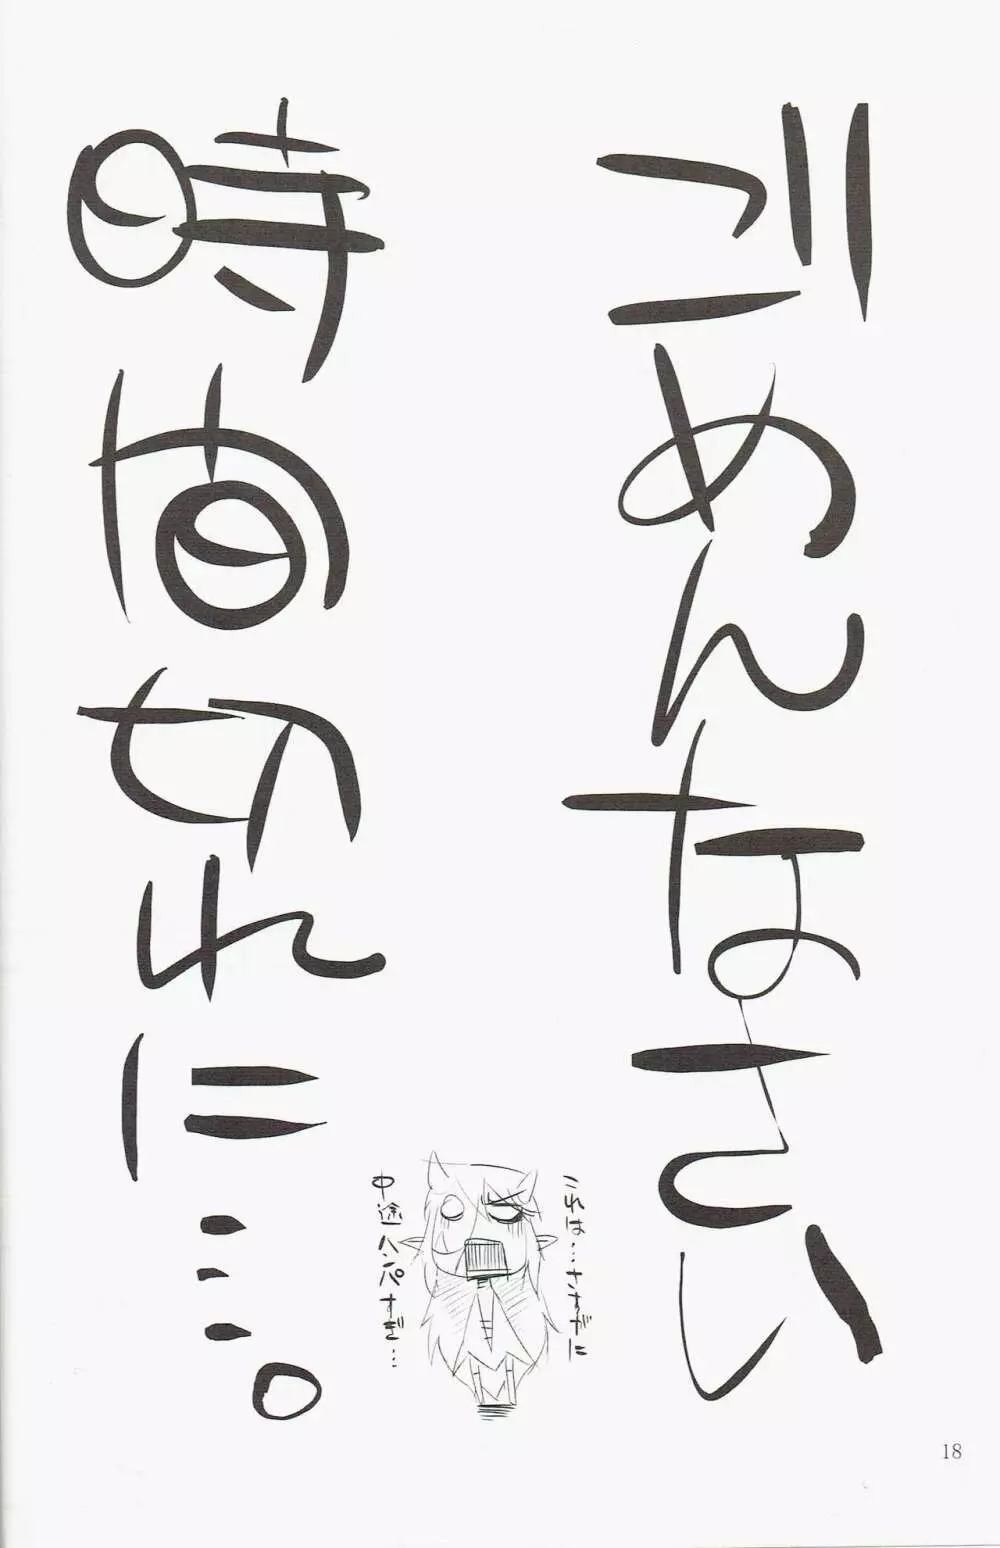 ごめんなさい
これは…さすがに
中途ハンパすぎ…
時間切れに…。
18